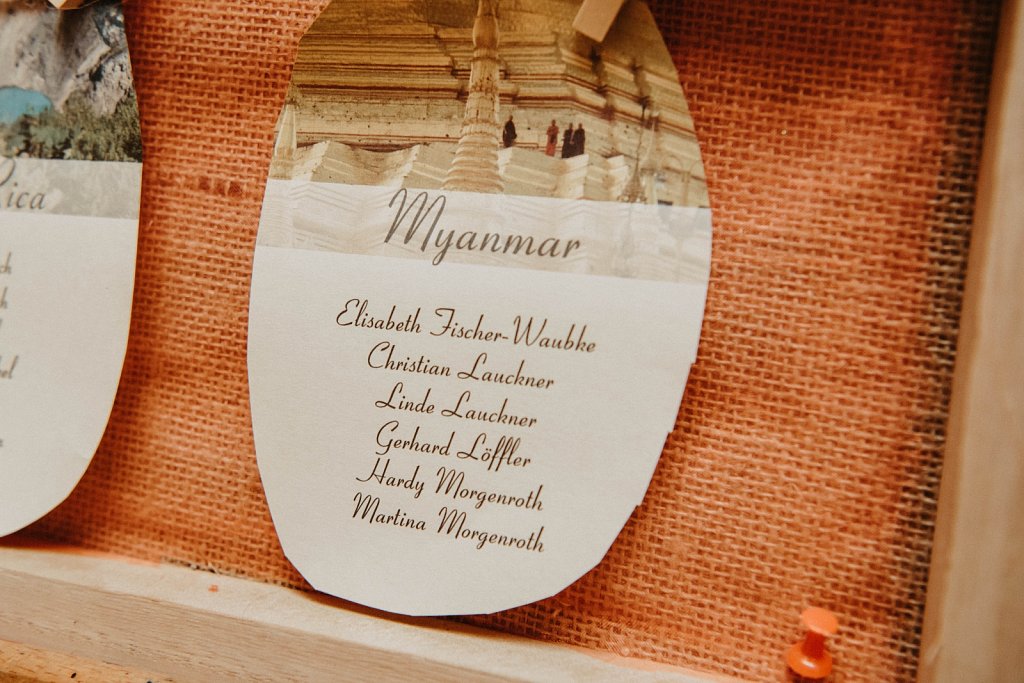 Rica
Myanmar
Elisabeth Fischer-Waubke
Christian Lauckner
Linde Lauckner
Gerhard Löffler
Hardy Morgenroth
Martina Morgenroth